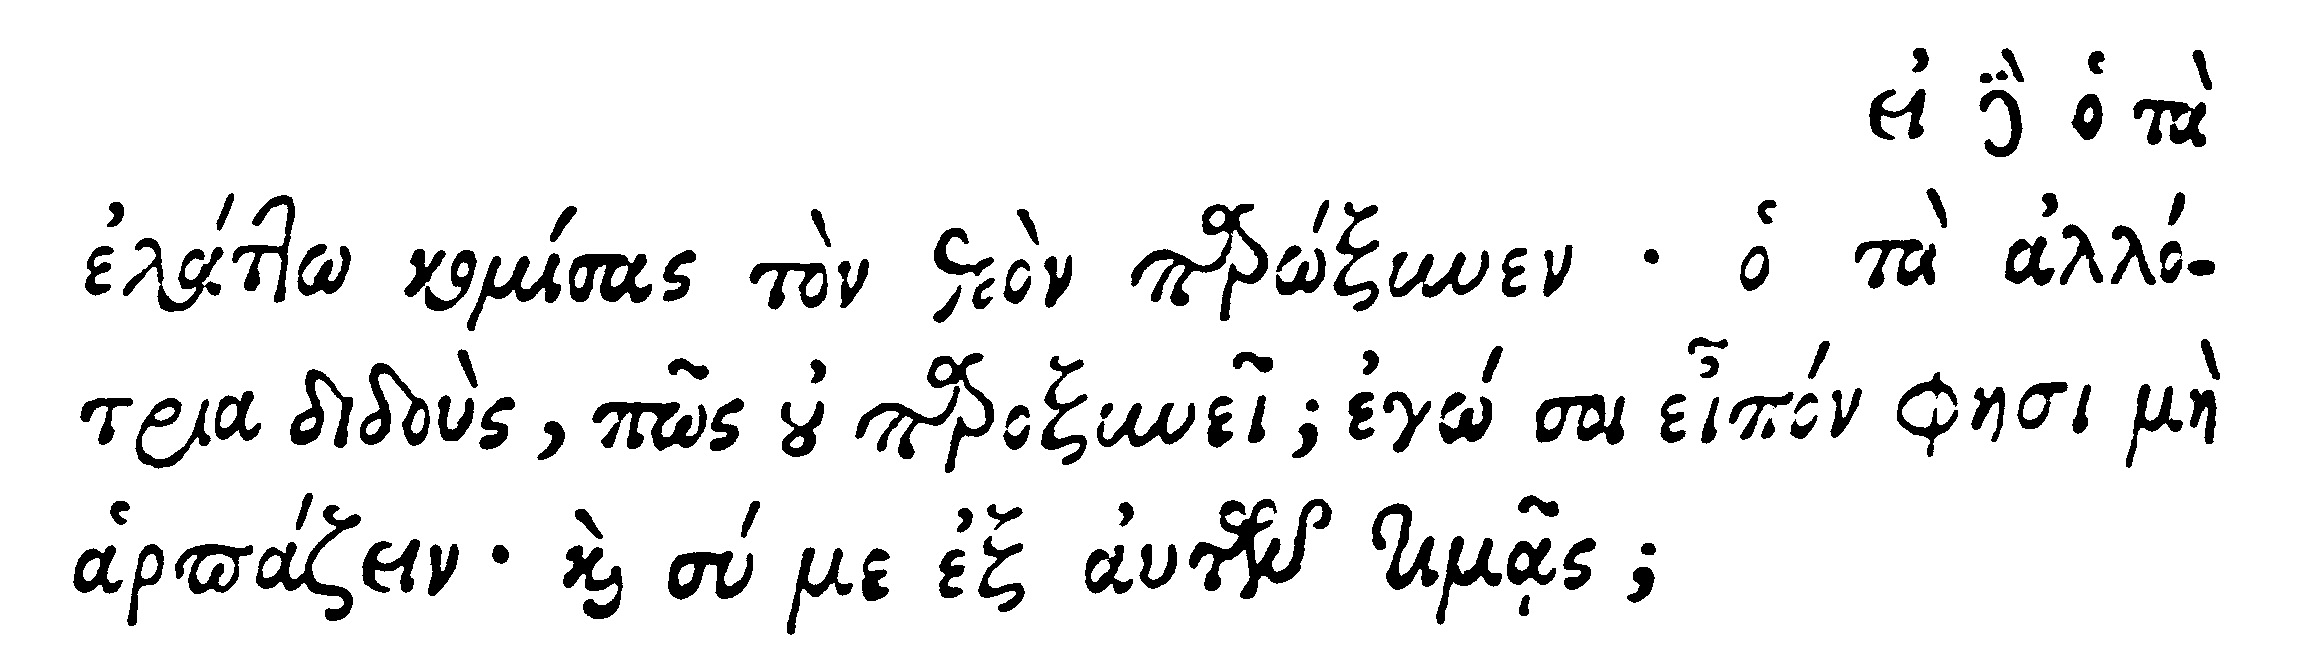 εἰ δὲ ὁ τὰ
ἐλάττω κομίσας τὸν θεὸν παρώξυνεν · ὁ τὰ ἀλλό-
τρια διδοὺς, πῶς οὐ παροξυνεῖ; ἐγώ σοι εἶπόν φησι μὴ
ἁρπάζειν · καὶ σύ με ἐξ αὐτῶν τιμᾷς;